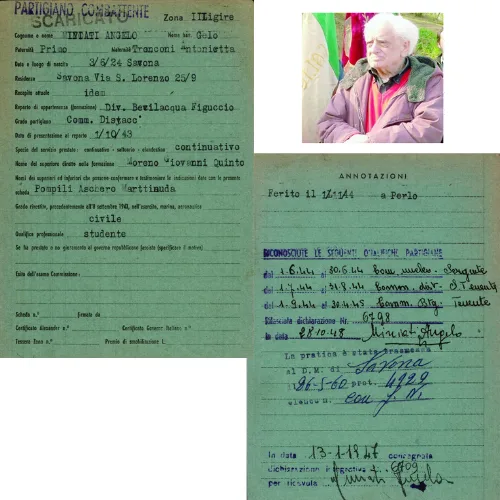 PARTIGIANO COMBATTENTE
SCARICATO
Zona II Ligire
Cognome e nome MINIATI ANGELO Nome batt. Gelo
Paternità Primo Maternità Tronconi Antonietta
Data e luogo di nascita 3/6/24 Savona
Residenza Savona Via S. Lorenzo 25/9
Recapito attuale idem
Reparto di appartenenza (formazione) Div. Bevilacqua Figuccio
Grado partigiano Comm. Distacc
Data di presentazione al reparto 1/10/43
Specie del servizio prestato - continuativo - saltuario - clandestino continuativo
Nome del superiore diretto nella formazione Moreno Giovanni Quinto
Nomi dei superiori ed inferiori che possono confermare e testimoniare le indicazioni date con la presente
scheda Pompili Asciero Marttinuda
Grado rivestito, precedentemente all'8 settembre 1943, nell'esercito, marina, aeronautica
civile
Qualifica professionale studente
Se ha prestato o no giuramento al governo repubblicano fascista (specificare il motivo)
Esito dell'esame Commissione:
Scheda n.° Emesso da
Certificato Alexander n.° Certificato Generico Italiano n.°
Tessera Enno n.° Premio di smobilitazione L.
ANNOTAZIONI
Ferito il 1/11/44 a Perlo
RICONOSCIUTE LE SEGUENTI QUALIFICHE PARTIGIANE
dal 1.6.44 al 30.6.44 Com. nucleo - Sergente
dal 1.7.44 al 31.8.44 Comm. dist. S Tenente
dal 1.9.44 al 30.4.45 Comm. Btg. Tenente
Rilasciata dichiarazione Nr. 6798
in data 28.10.48 Miniati Angelo
La pratica è stata trasmessa
al D.M. di Savona
il 26-5-60 prot. 4929
elenco N. con f. N.
In data 13-1-1947 consegnata
dichiarazione integrativa n. 6709
per ricevuta Miniati Angelo